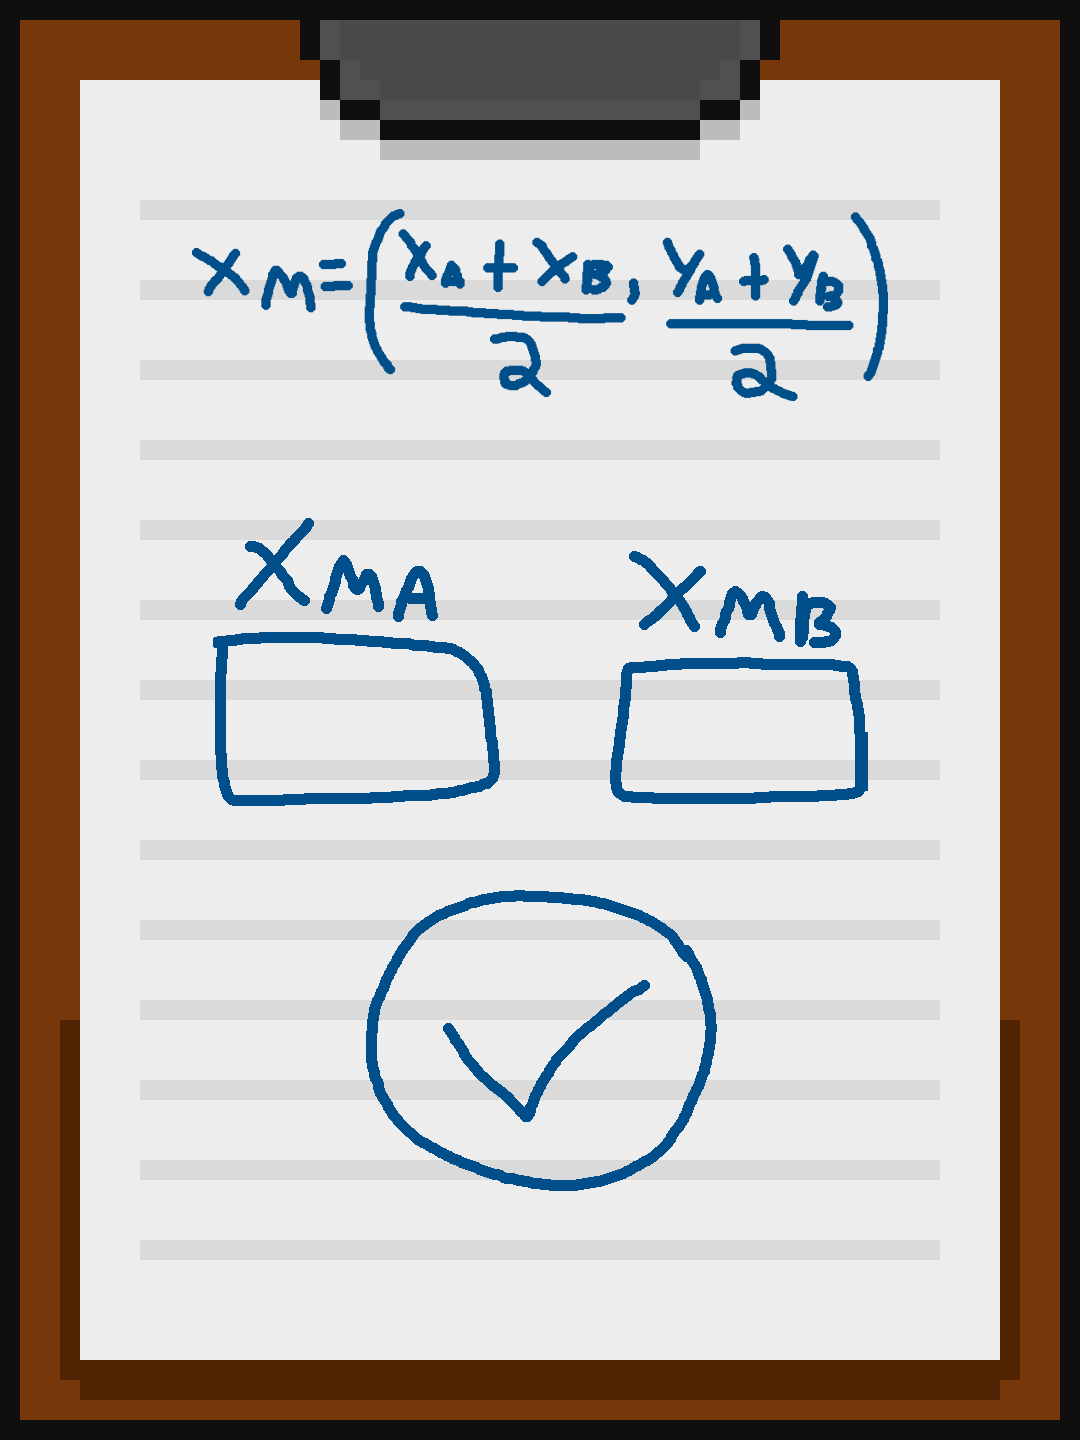 XM=(XA+XB/2, YA+YB/2)
XMA XMB